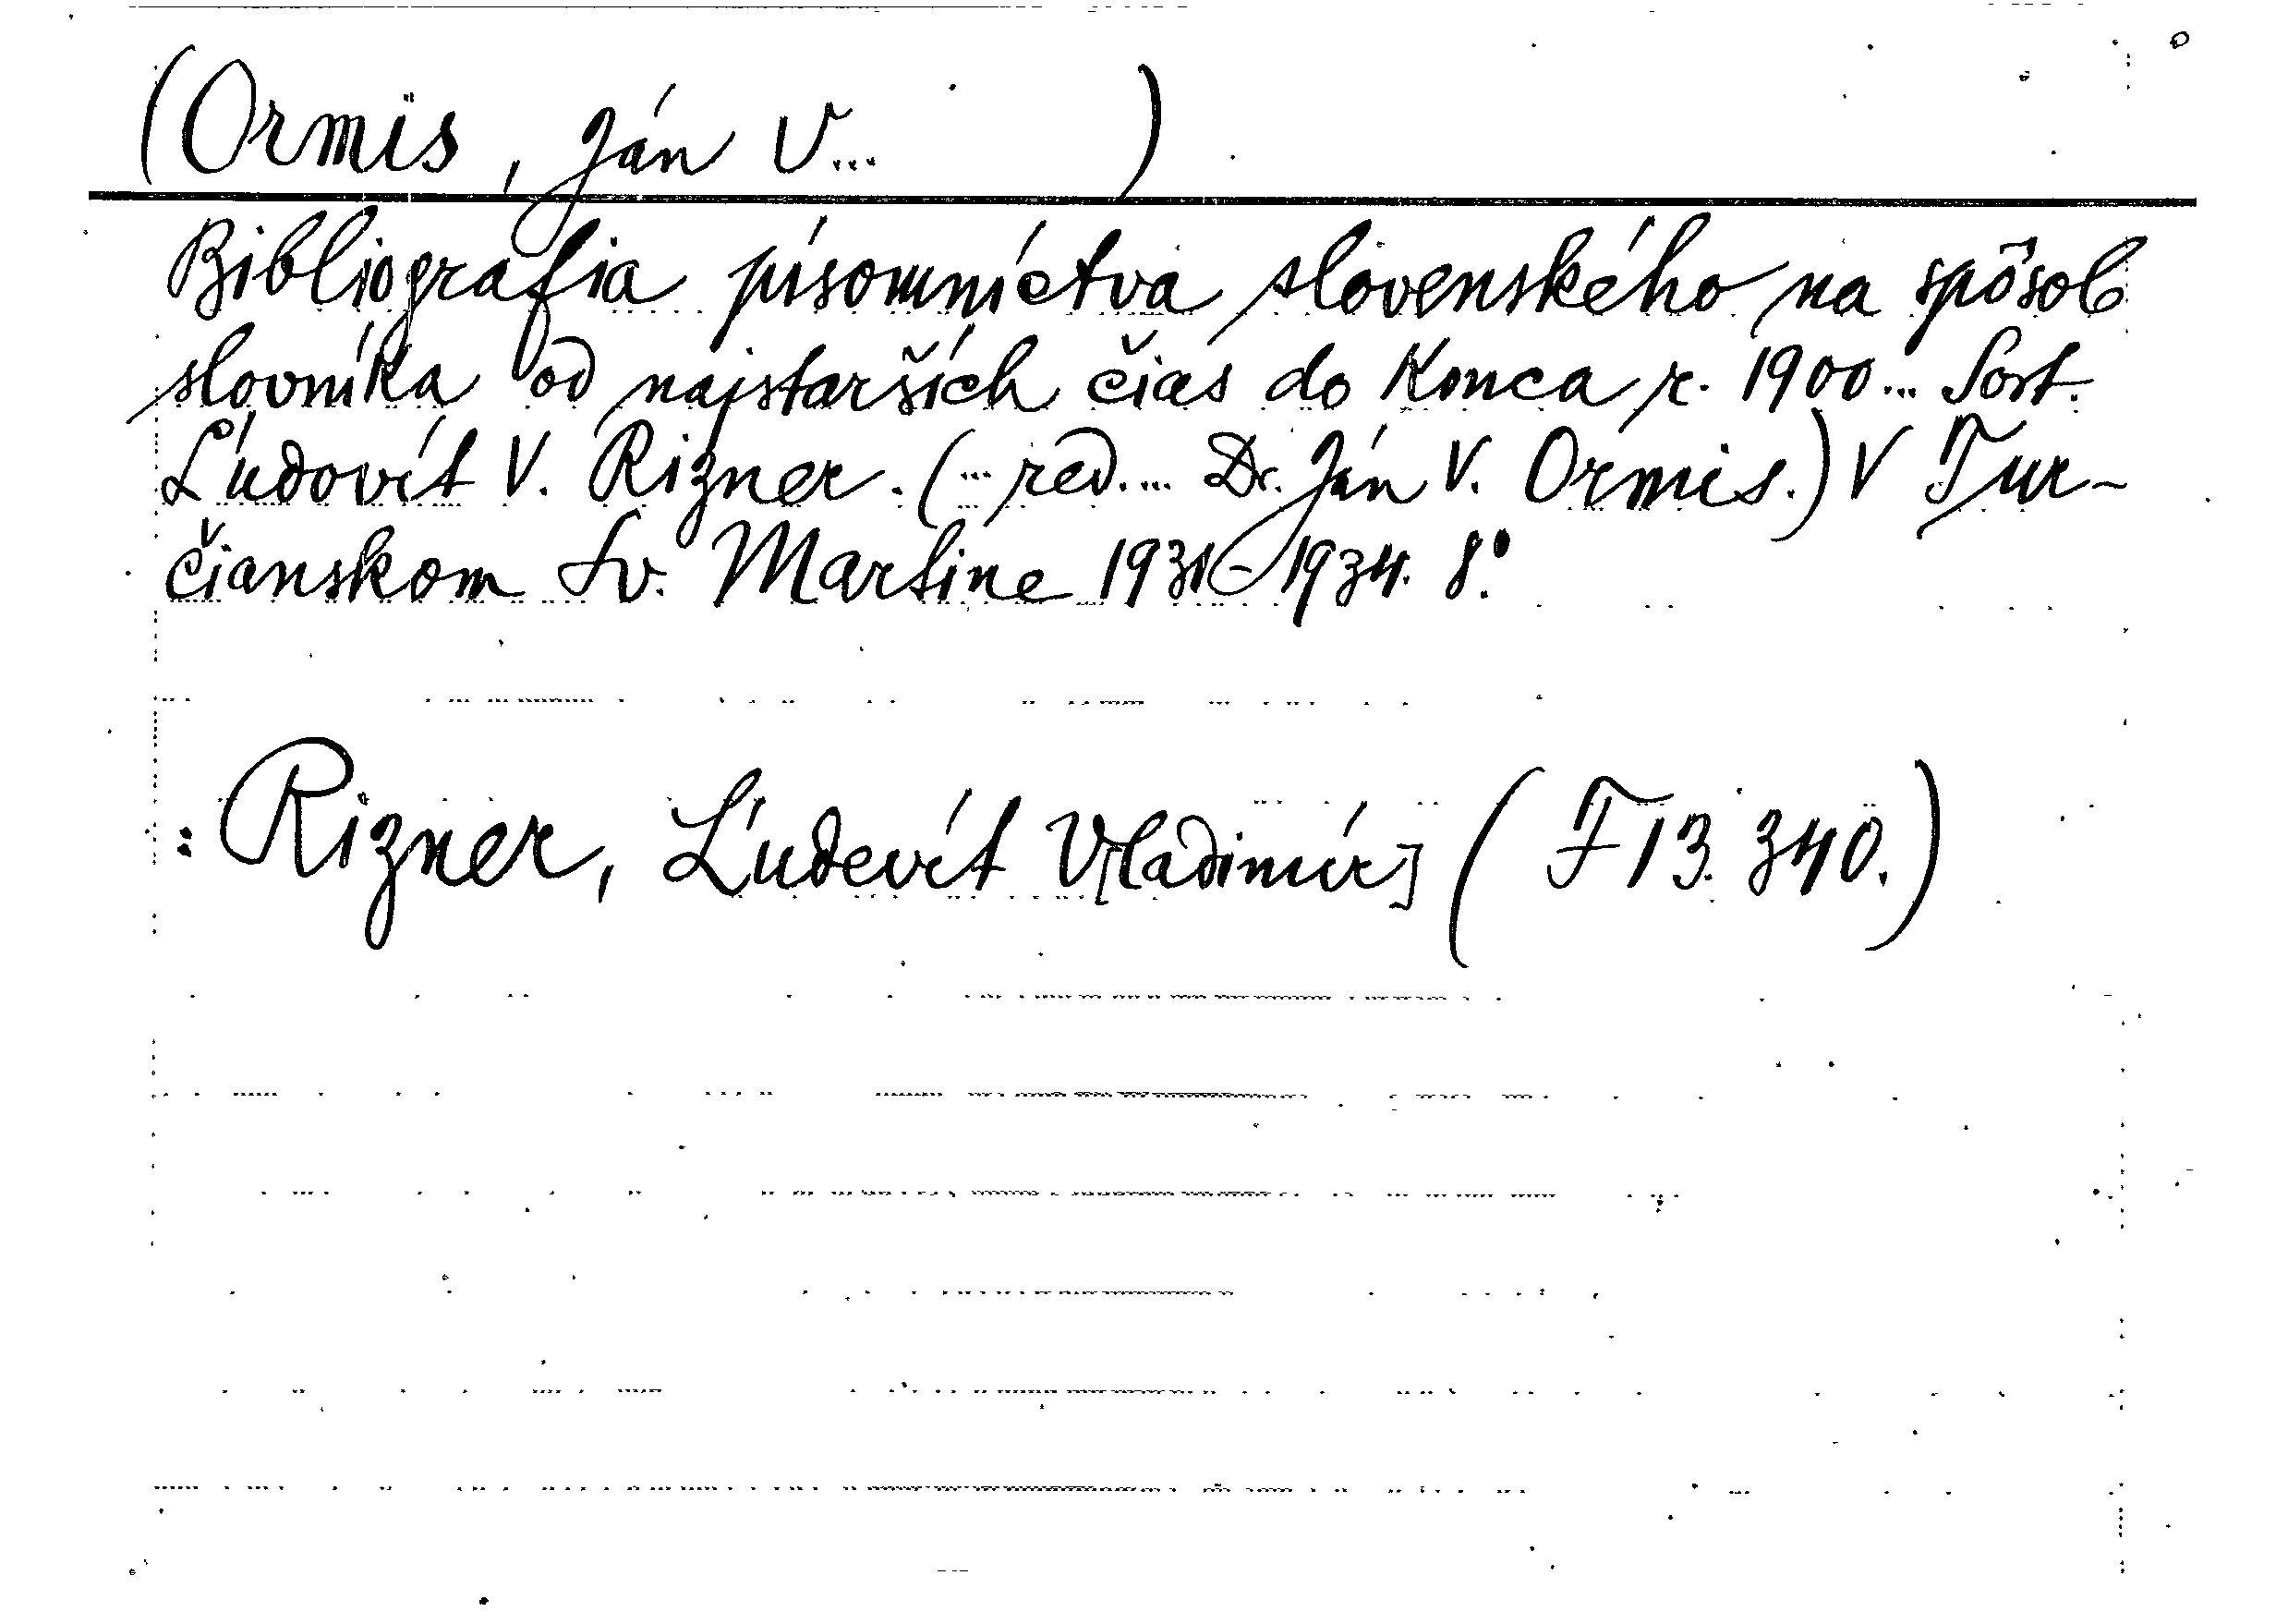 (Ormis, Ján V... )
Bibliografia písomníctva slovenského na spôsob
slovníka od najstarších čias do konca r. 1900... Sost.
Ľudovít V. Rizner. (... red. ... Dr. Ján V. Ormis.) V Tur-
čianskom Sv. Martine 1931-1934. 8°.
: Rizner, Ľudevít V[ladimír] (F 13.340.)